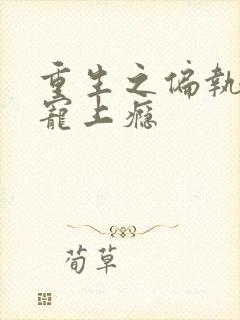 重生之偏执
宠上瘾
荀草